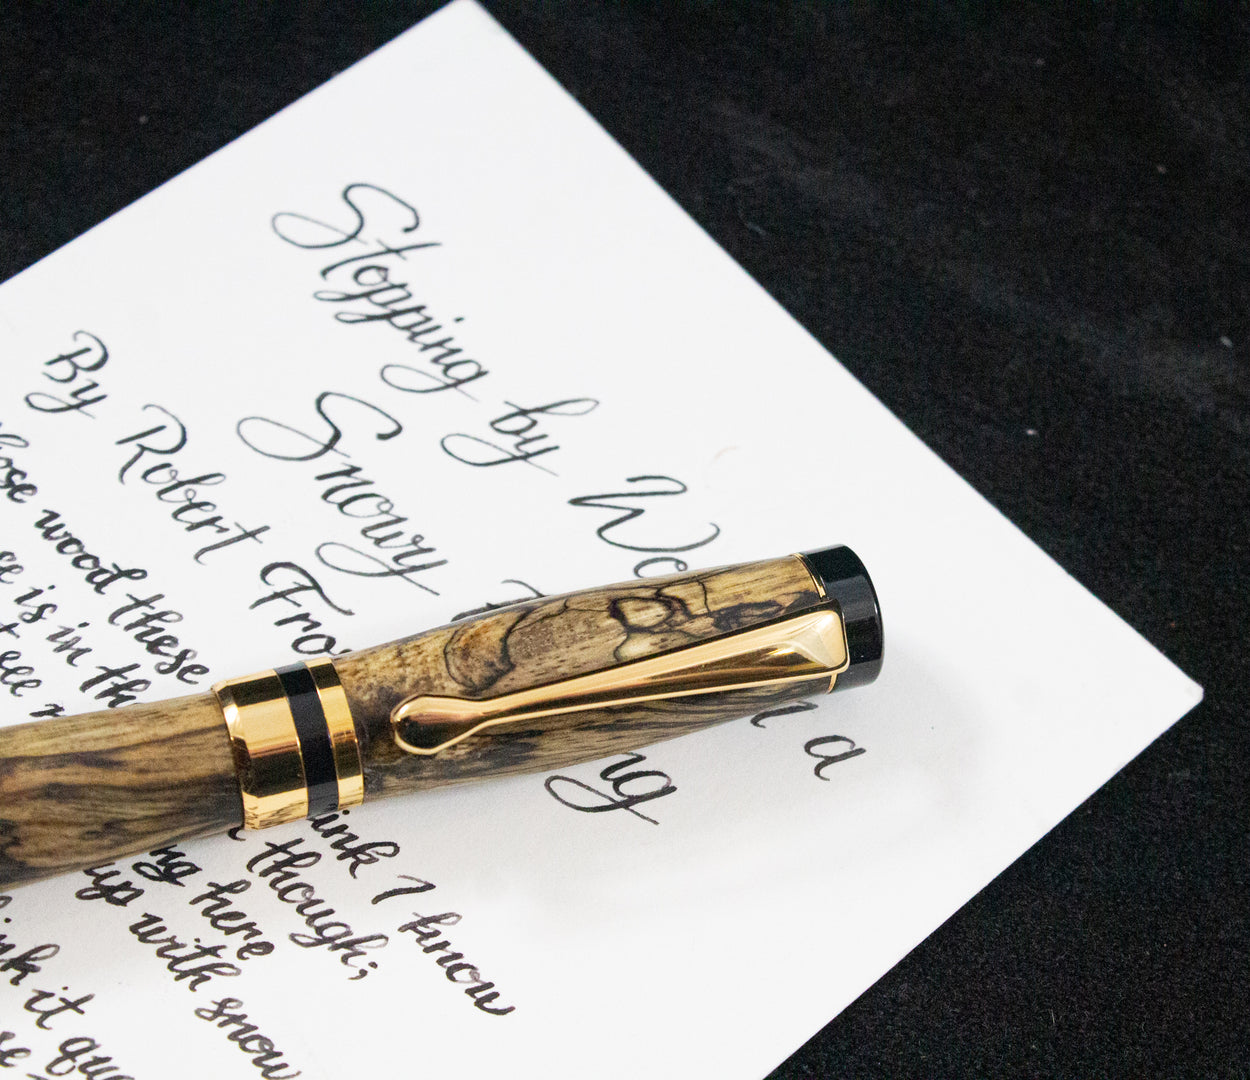 Stopping by Wo n a
Snowy ng
By Robert Fro
hose wood these ink I know
se is in th though;
t see m ng here
up with snow
ink it que
se